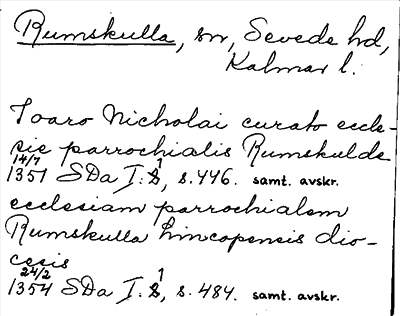 Rumskulla, sn, Sevede hd,
Kalmar l.
Ioaro Nicholai curato eccle-
sie parrochialis Rumskulde
14/7
1351 SDa I:1, s.446. samt. avskr.
ecclesiam parrochialem
Rumskulla Lincopensis dio-
cesis
24/2
1354 SDa I:1, s.484. samt. avskr.